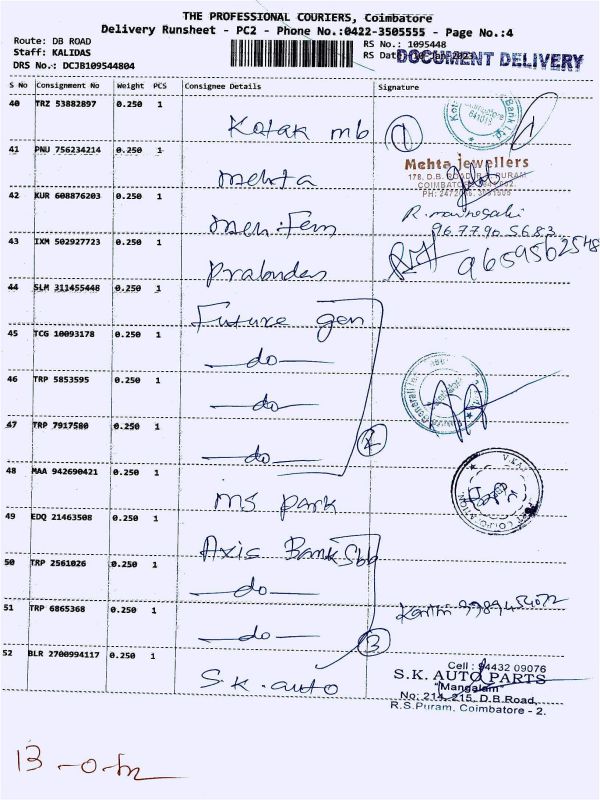 THE PROFESSIONAL COURIERS, Coimbatore
Delivery Runsheet - PC2 - Phone No.:0422-3505555 - Page No.:4
Route: DB ROAD
Staff: KALIDAS
DRS No.: DCJB109544804
RS No.: 1095448
RS Dat
DOCUMENT DELIVERY
S No Consignment No Weight PCS Consignee Details Signature
40 TRZ 53882897 0.250 1
Kotak mb 1
Bank Ltd
641013
41 PNU 756234214 0.250 1
Mehta
Mehta jewellers
178, D.B. ROAD, R.S. PURAM
COIMBATORE
42 KUR 608876203 0.250 1
96779 05683
43 IXM 502927723 0.250 1
9659562548
44 SLM 311455448 0.250 1
Future gen
45 TCG 10093178 0.250 1
do
46 TRP 5853595 0.250 1
do
47 TRP 7917580 0.250 1
do
48 MAA 942690421 0.250 1
ms park
49 EDQ 21463508 0.250 1
Axis Bank Sbb
50 TRP 2561026 0.250 1
do
51 TRP 6865368 0.250 1
do
3
52 BLR 2700994117 0.250 1
S.K. auto
Cell : 94432 09076
S.K. AUTO PARTS
"Mangalam"
No: 214, 215, D.B.Road,
R.S.Puram, Coimbatore - 2.